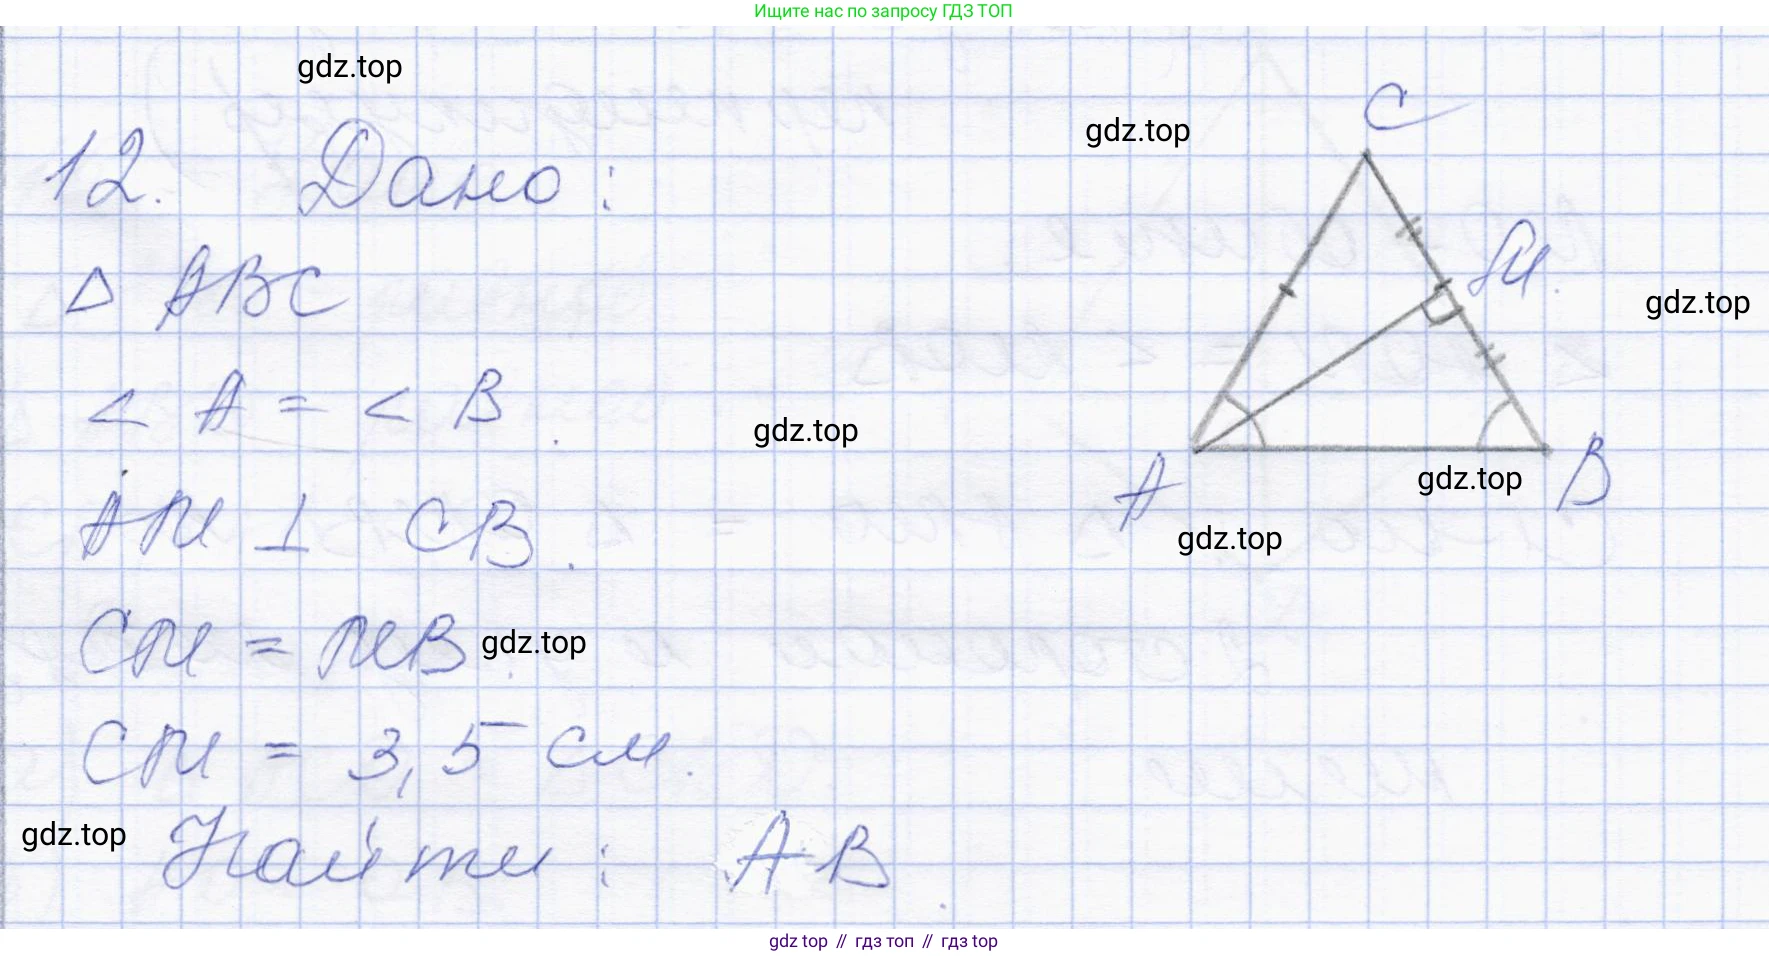 Ищите нас по запросу ГДЗ ТОП
gdz.top
12. Дано:
gdz.top
C
△ ABC
M.
gdz.top
< A = < B.
gdz.top
A
gdz.top
B
AM ⊥ CB.
gdz.top
CM = MB.
gdz.top
CM = 3,5 см.
gdz.top
Найти: AB.
gdz top // гдз топ // gdz top